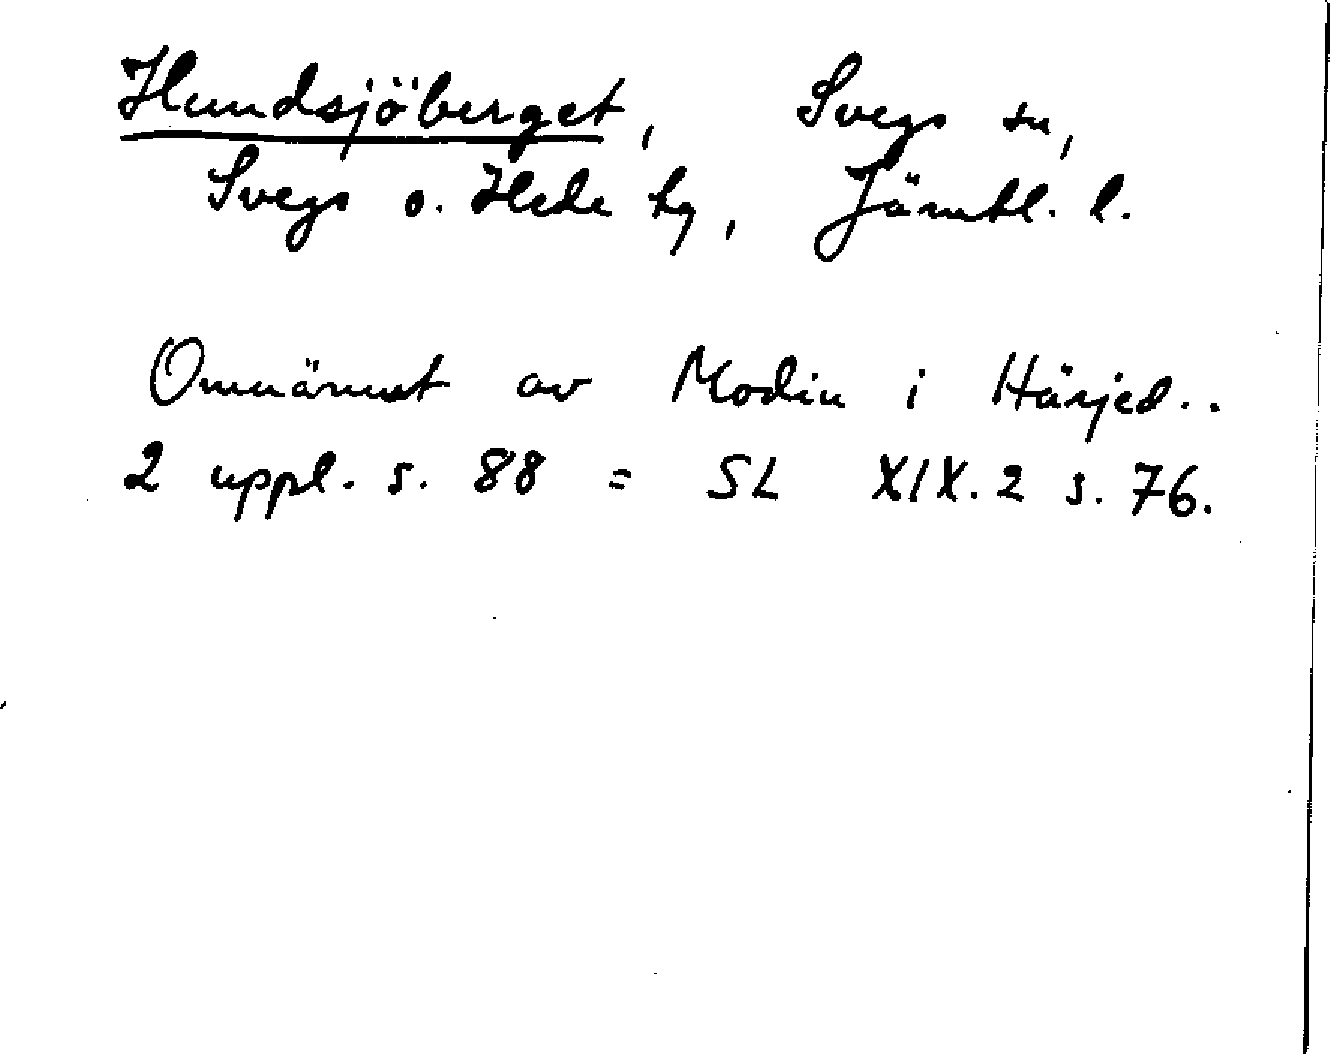 Hundsjöberget, Svegs sn,
Svegs o. Hede tg, Jämtl. l.
Omnämnt av Modin i Härjed..
2 uppl. s. 88 = SL XIX.2 s. 76.